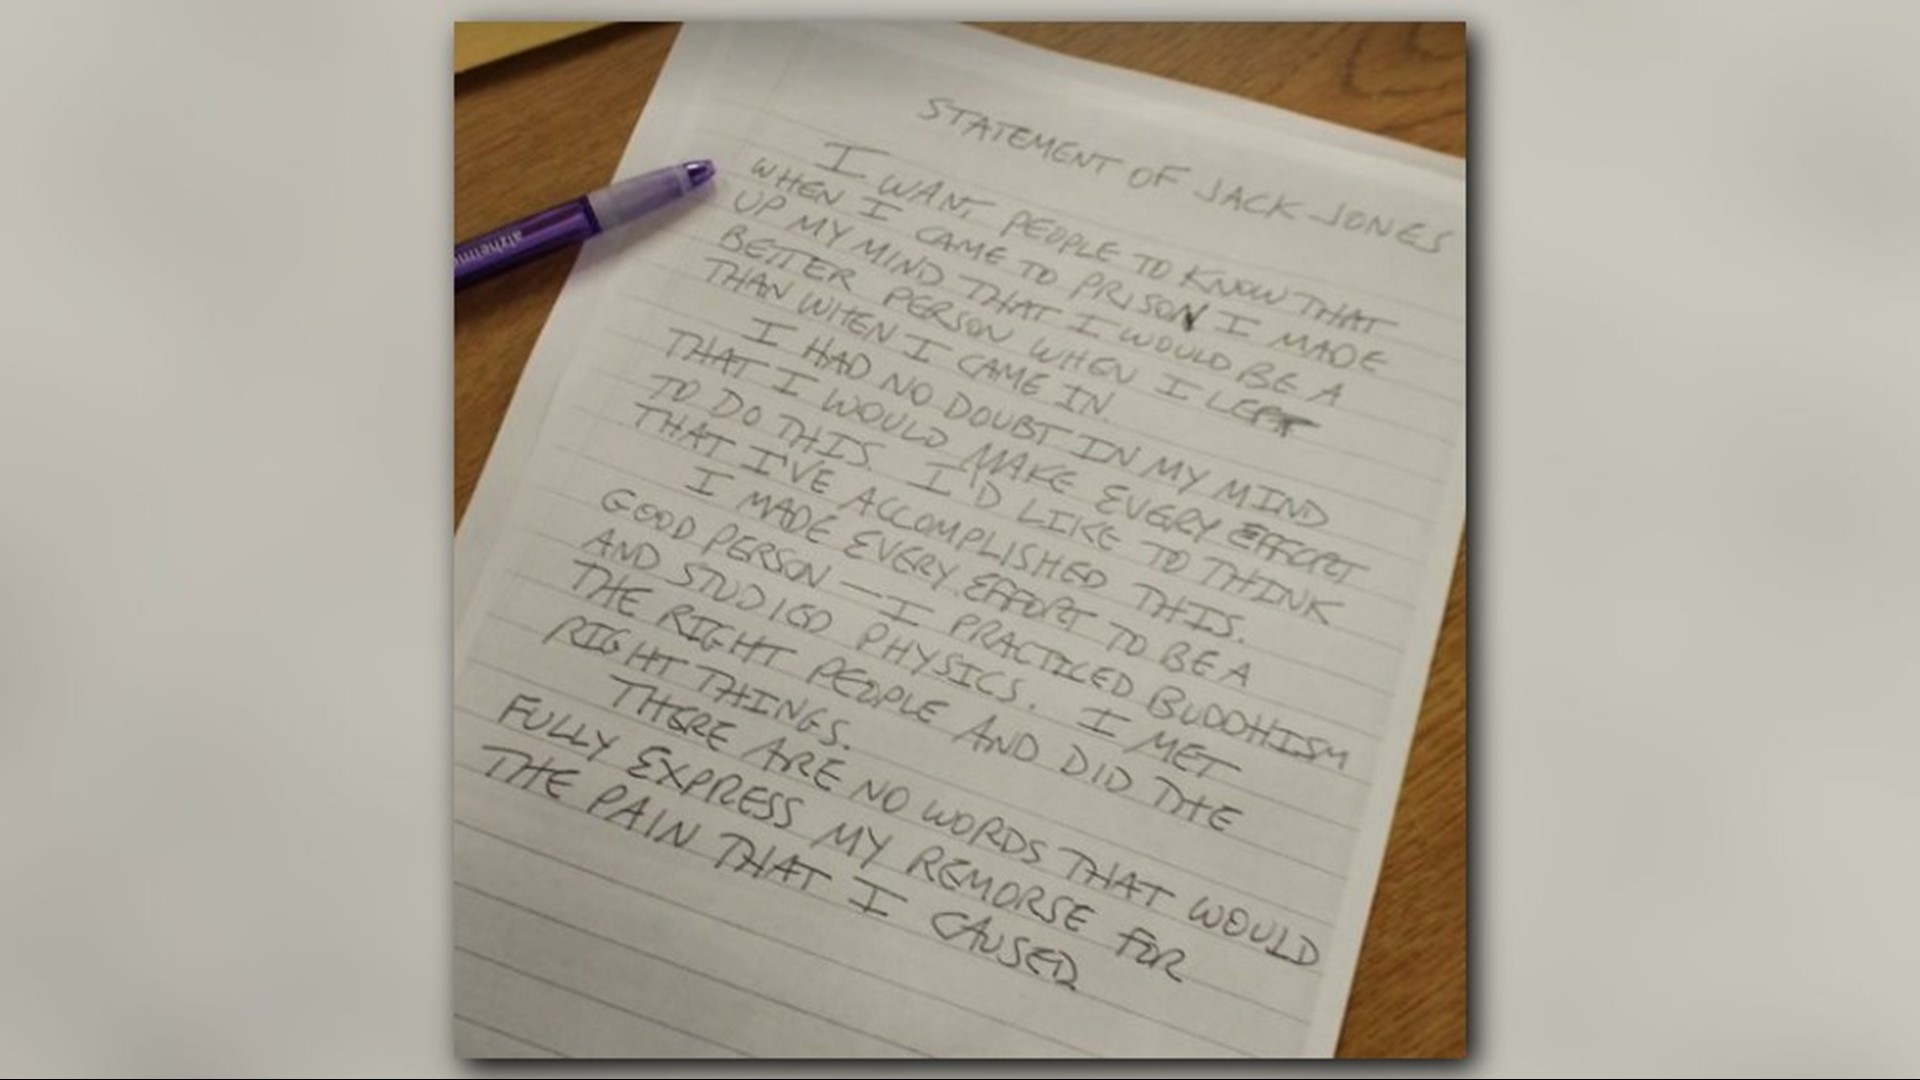 STATEMENT OF JACK JONES
I WANT PEOPLE TO KNOW THAT
WHEN I CAME TO PRISON I MADE
UP MY MIND THAT I WOULD BE A
BETTER PERSON WHEN I LEFT
THAN WHEN I CAME IN.
I HAD NO DOUBT IN MY MIND
THAT I WOULD MAKE EVERY EFFORT
TO DO THIS. I'D LIKE TO THINK
THAT I'VE ACCOMPLISHED THIS.
I MADE EVERY EFFORT TO BE A
GOOD PERSON — I PRACTICED BUDDHISM
AND STUDIED PHYSICS. I MET
THE RIGHT PEOPLE AND DID THE
RIGHT THINGS.
THERE ARE NO WORDS THAT WOULD
FULLY EXPRESS MY REMORSE FOR
THE PAIN THAT I CAUSED.